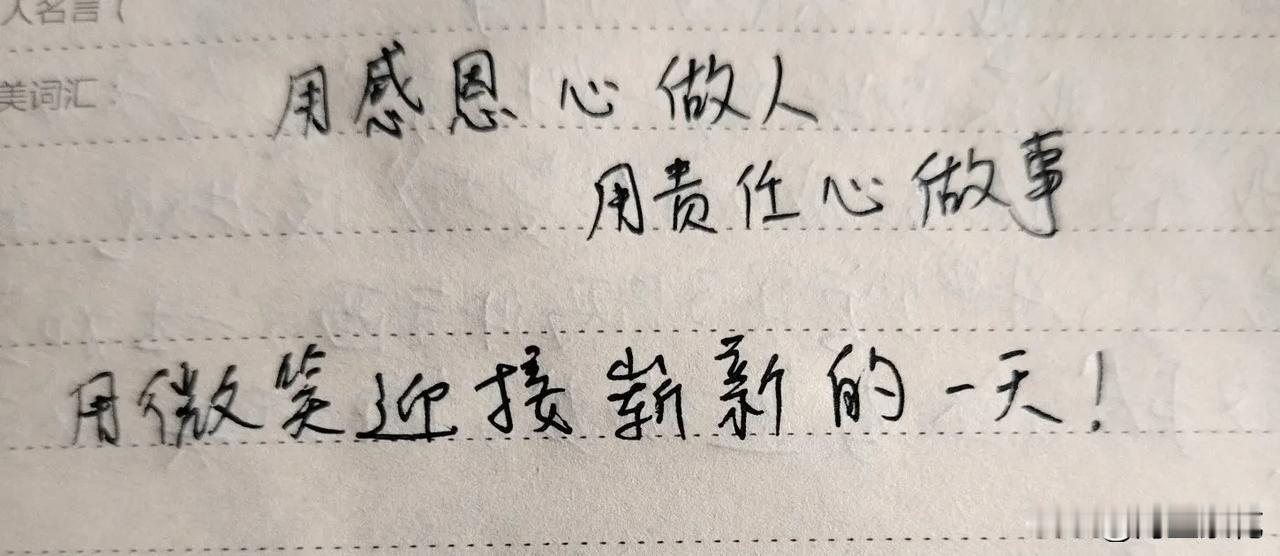 人名言（
美词汇：
用感恩心做人
用责任心做事
用微笑迎接崭新的一天！